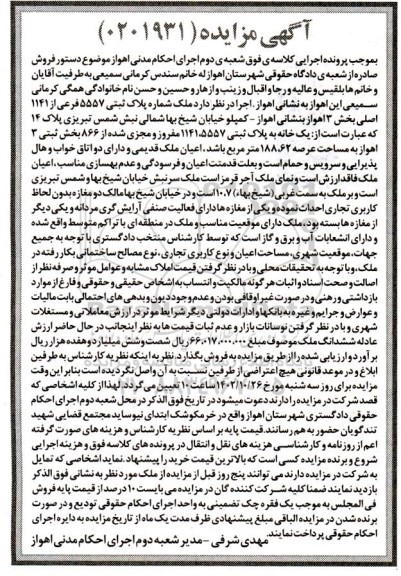 آگهی مزایده (۰۲۰۱۹۳۱)
بموجب پرونده اجرایی کلاسه ی فوق شعبه ی دوم اجرای احکام مدنی اهواز موضوع دستور فروش
صادره از شعبه ی دادگاه حقوقی شهرستان اهواز له خانم سندس کرمانی سمیعی به طرفیت آقایان
و خانم ها بلقیس و عالیه و رجا و اقبال و زینب و ازهار و حسین و حسن نام خانوادگی همگی کرمانی
سمیعی این اهواز به نشانی اهواز. اجرا در نظر دارد ملک شماره پلاک ثبتی ۵۵۵۷ فرعی از ۱۱۴۱
اصلی بخش ۳ اهواز بنشانی اهواز - کمپلو خیابان شیخ بها شمالی نبش شمس تبریزی پلاک ۱۴
که عبارت است از: یک خانه به پلاک ثبتی ۱۱۴۱،۵۵۵۷ مفروز و مجزی شده از ۸۶۶ بخش ثبتی ۳
اهواز به مساحت عرصه ۱۸۸.۶۲ متر مربع باشد. اعیان ملک قدیمی و دارای دو اتاق خواب و هال
پذیرایی و سرویس و حمام است و بعلت قدمت اعیان و فرسودگی و عدم بهسازی مناسب ، اعیان
ملک فاقد ارزش است و نمای ملک آجر قرمز است ملک سر نبش خیابان شیخ بها و شمس تبریزی
است و بر ملک به سمت غربی (شیخ بهاء) ۱۰.۷ است و در خیابان شیخ بها مالک دو مغازه بدون لحاظ
کاربری تجاری احداث نموده و یکی از مغازه ها دارای فعالیت صنفی آرایش گری مردانه و یکی دیگر
از مغازه ها بسته بود. ملک دارای موقعیت مناسب و ملک در منطقه ای با تراکم متوسط واقع شده
و دارای انشعابات آب و برق و گاز است که توسط کارشناس منتخب دادگستری با توجه به جمیع
جهات، موقعیت شهری، مساحت اعیان و نوع کاربری تجاری ، نوع مصالح ساختمانی بکار رفته در
ملک، و با توجه به تحقیقات محلی و با در نظر گرفتن قیمت املاک مشابه و عوامل موثر و صرفه نظر از
اصالت و صحت اسناد و اثبات هر گونه مالکیت و انتساب به اشخاص حقیقی و حقوقی و فارغ از موارد
بازداشتی و رهنی و در صورت غیر اوقافی بودن و عدم وجود دیون و بدهی های احتمالی بابت مالیات
و عوارض و جرایم و غیره به بانکها و ادارات دولتی دیگر شرایط موثر در ارزش معاملاتی و مستغلات
شهری و با در نظر گرفتن نوسانات بازار و عدم ثبات قیمت ها به نظر اینجانب در حال حاضر ارزش
عادله ششدانگ ملک موصوف مبلغ ۶۶.۰۱۷.۰۰۰.۰۰۰ ریال شصت و شش میلیارد و هفده هزار ریال
بر آورد و ارزیابی شده را از طریق مزایده به فروش بگذارد. نظر به اینکه نظریه کارشناس به طرفین
ابلاغ و در موعد قانونی هیچ اعتراضی از طرفین نسبت به آن واصل نگردیده است بنابر این وقت
مزایده برای روز سه شنبه مورخ ۱۴۰۲/۱۰/۲۶ ساعت ۱۱ تعیین می گردد. لهذا از کلیه اشخاصی که
قصد شرکت در مزایده را دارند دعوت میشود در تاریخ فوق الذکر در محل شعبه دوم اجرای احکام
حقوقی دادگستری شهرستان اهواز واقع در خرمکوشک ابتدای نیوساید مجتمع قضایی شهید
تندگویان حضور به هم رسانند. قیمت پایه بر اساس نظریه کارشناس و هزینه های صورت گرفته
اعم از روزنامه و کارشناسی هزینه های نقل و انتقال در پرونده های کلاسه فوق و هزینه اجرایی
شروع و برنده مزایده کسی است که بالاترین قیمت خرید را پیشنهاد نماید. اشخاصی که تمایل
به شرکت در مزایده دارند می توانند پنج روز قبل از مزایده از ملک مورد نظر به نشانی فوق الذکر
بازدید نمایند ضمنا کلیه شرکت کننده گان در مزایده می بایست ۱۰ درصد از قیمت پایه فروش
فی المجلس به موجب یک فقره چک تضمینی به واحد اجرای احکام حقوقی تودیع و در صورت
برنده شدن در مزایده الباقی مبلغ پیشنهادی ظرف مدت یک ماه از تاریخ مزایده به دایره اجرای
احکام حقوقی پرداخت نمایند.
مهدی شرفی - مدیر شعبه دوم اجرای احکام مدنی اهواز